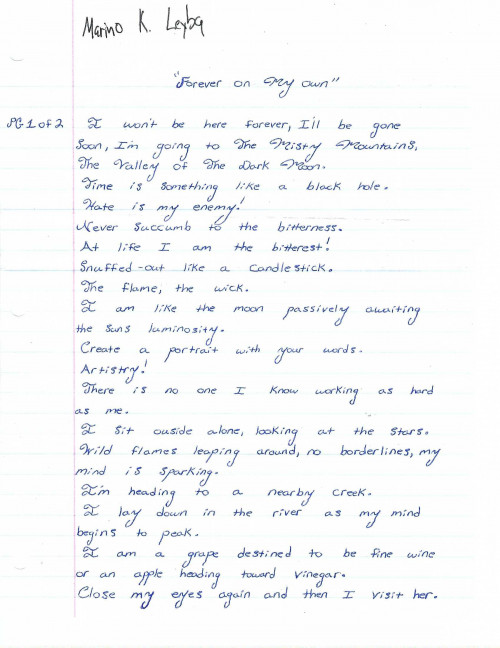 Marino K. Leyba
"Forever on My own"
PG 1 of 2 I won't be here forever, I'll be gone
Soon, I'm going to The Misty Mountains,
The Valley of The Dark Moon.
Time is something like a black hole.
Hate is my enemy!
Never Succumb to the bitterness.
At life I am the bitterest!
Snuffed-out like a Candlestick.
The flame, the wick.
I am like the moon passively awaiting
the Suns luminosity.
Create a portrait with your words.
Artistry!
There is no one I know working as hard
as me.
I Sit ouside alone, looking at the Stars.
Wild flames leaping around, no borderlines, my
mind is Sparking.
I'm heading to a nearby Creek.
I lay down in the river as my mind
begins to peak.
I am a grape destined to be fine wine
or an apple heading toward vinegar.
Close my eyes again and then I visit her.